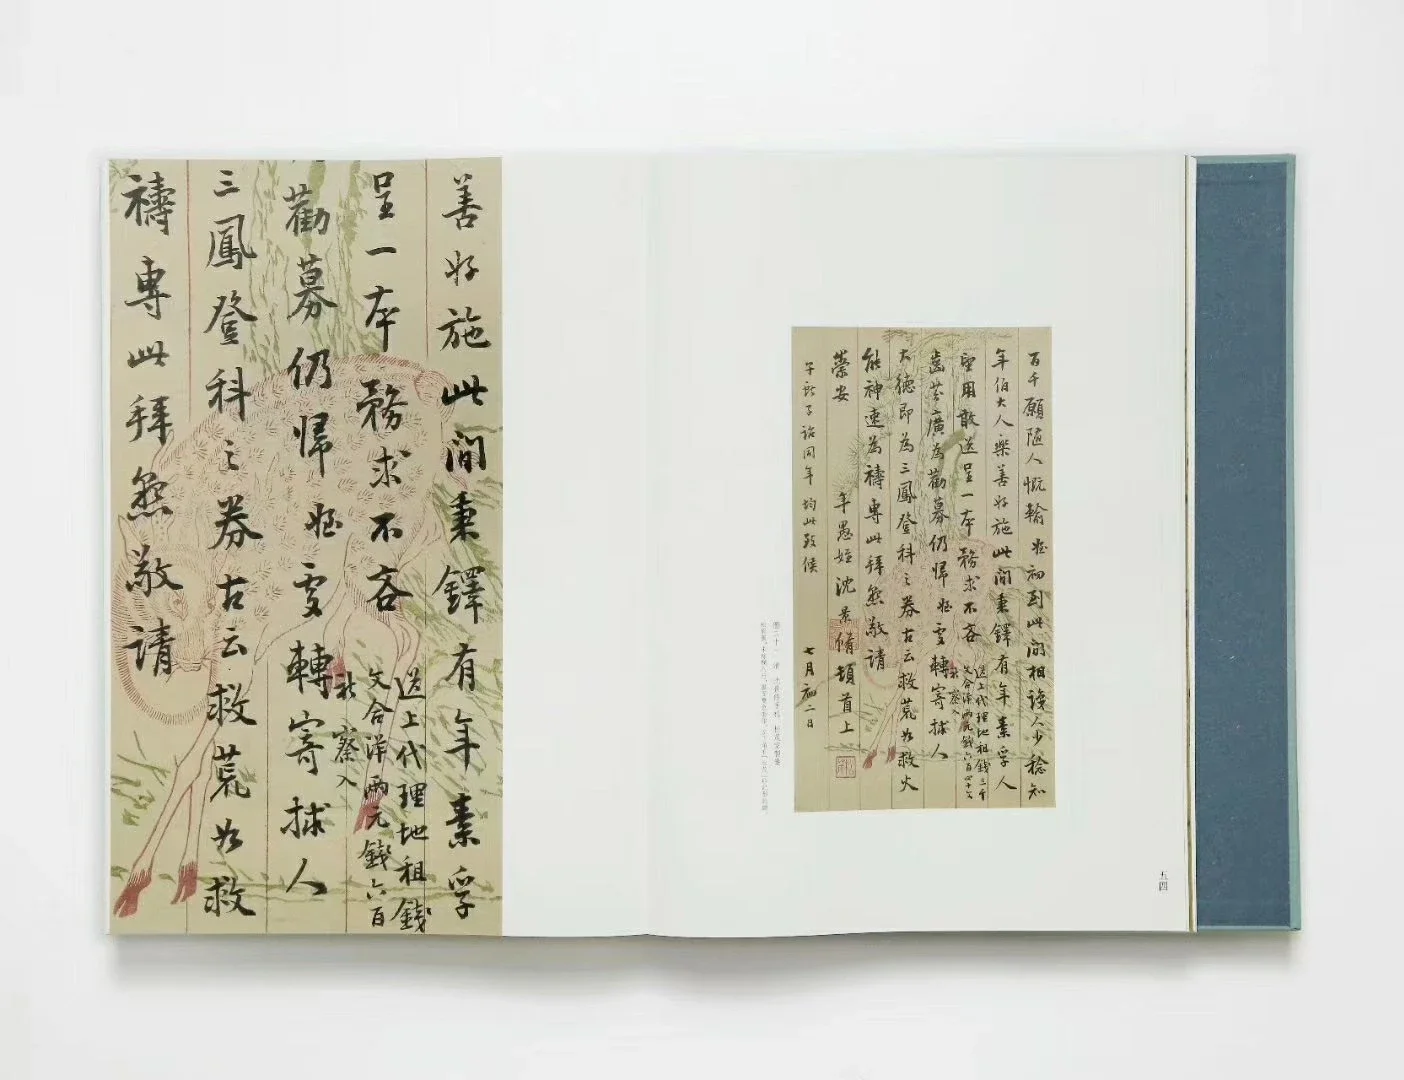 百千願隨人慨輸姪初到此間相識人少稔知
年伯大人樂善好施此間秉鐸有年素孚人
望用敢送呈一本務求不吝
送上代理地租錢三千
文合洋兩元錢六百四十文
祈察入
齒芬廣為勸募仍歸姪處轉寄捄人
大德即為三鳳登科之券古云救荒如救火
能神速為禱專此拜懇敬請
崇安
年愚姪沈景脩頓首上
七月初二日
子獻子詒同年均此致候
五四
善好施此間秉鐸有年素孚
呈一本務求不吝
送上代理地租錢
文合洋兩元錢六百
祈察入
勸募仍歸姪處轉寄捄人
三鳳登科之券古云救荒如救
禱專此拜懇敬請